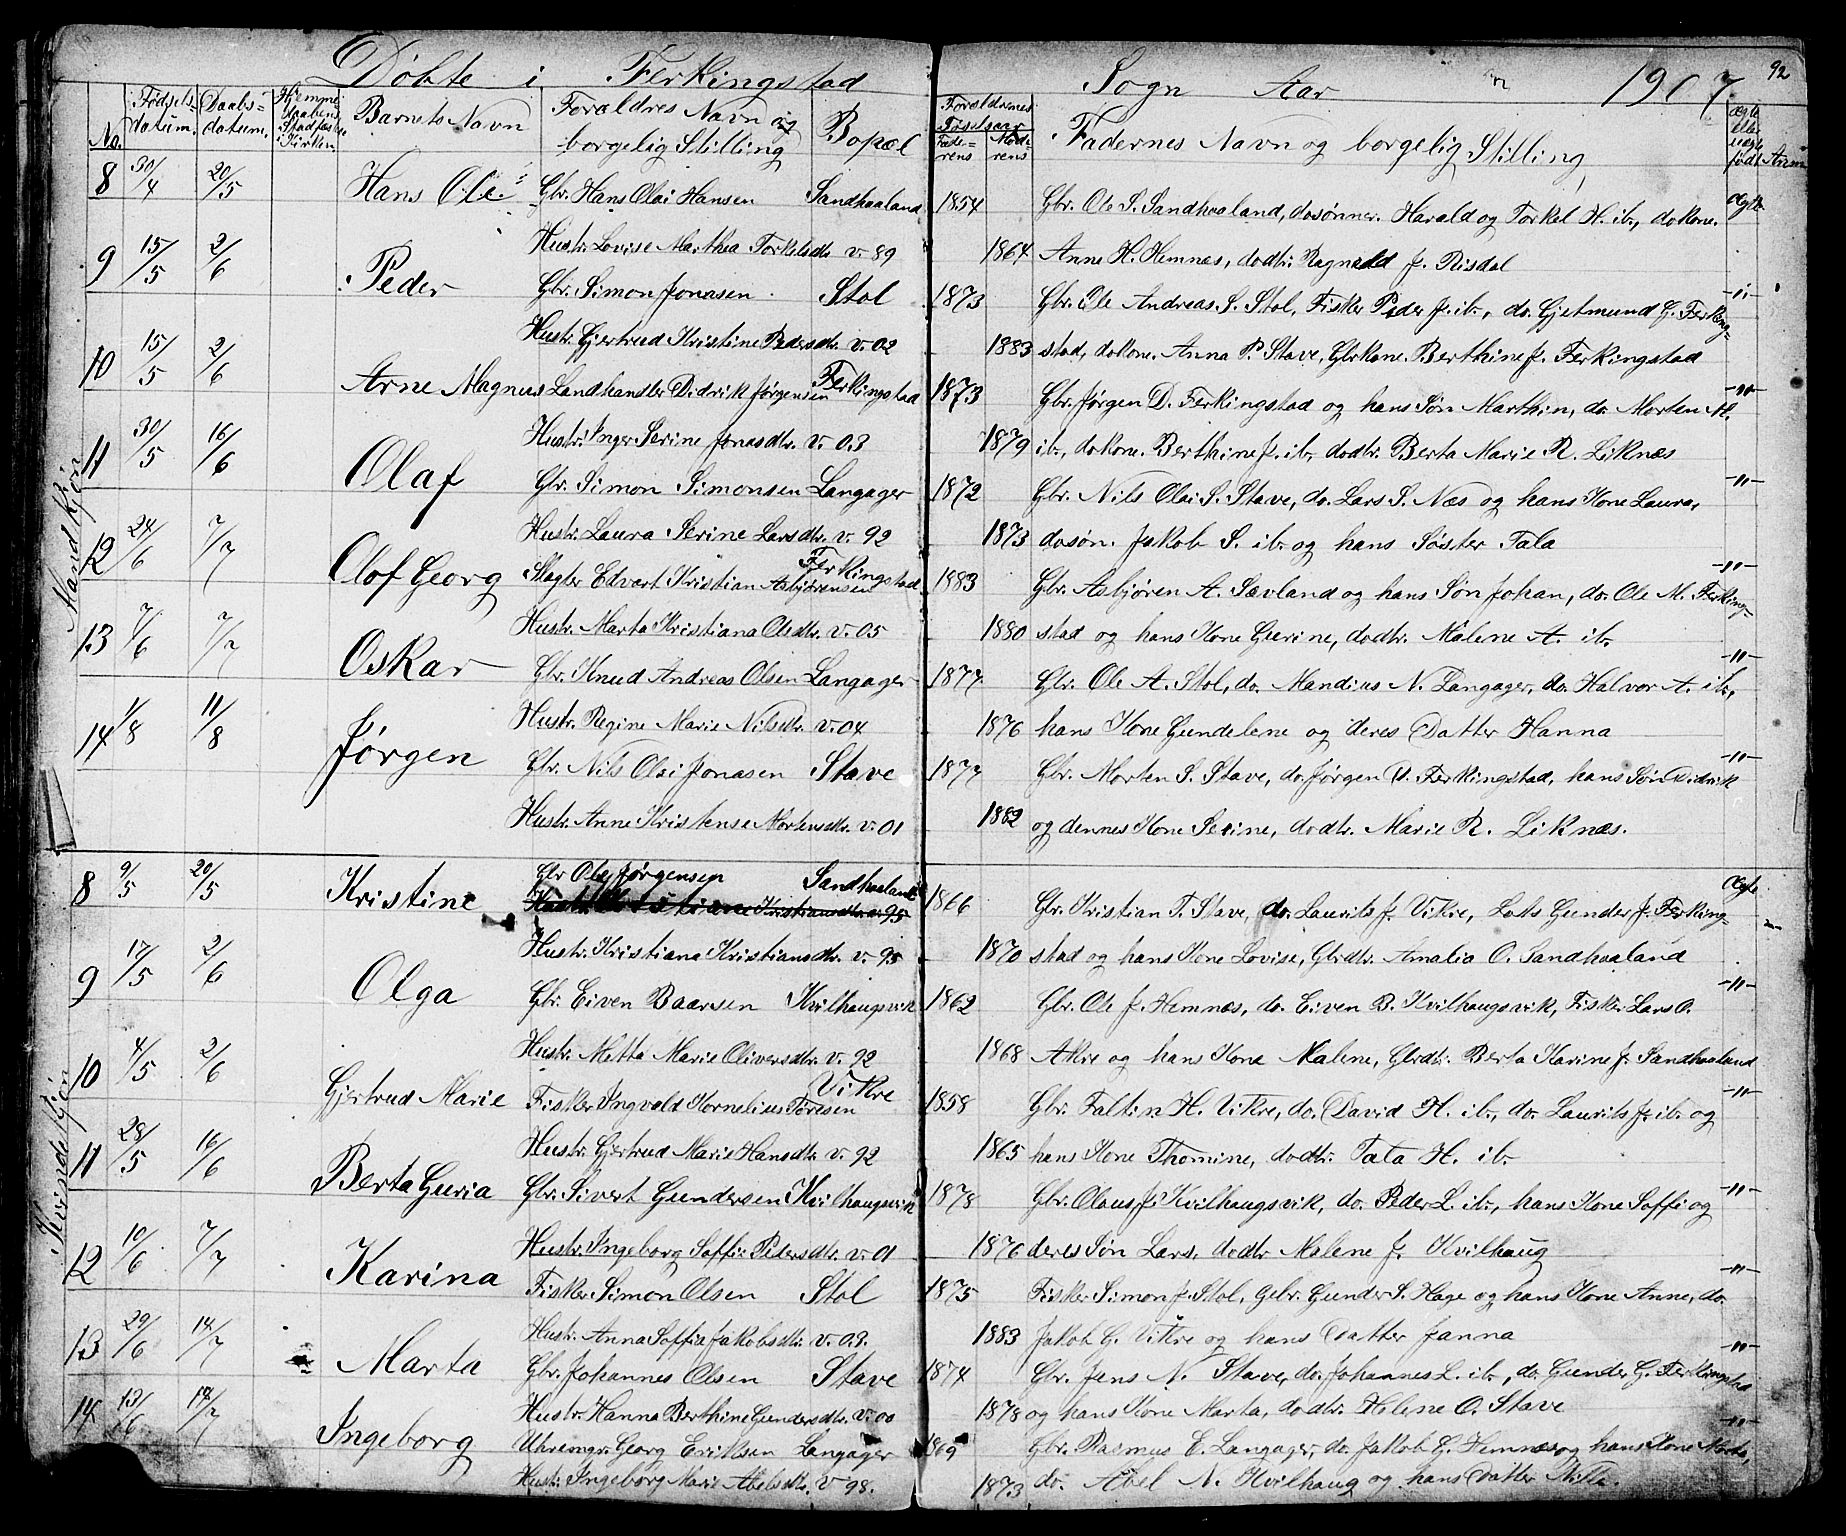 Døbte i Ferkingstad Sogn Aar 1907. 92
No. Fødsels-datum. Daabs-datum. Hjemme Barnets Navn Forældres Navn og borgelig Stilling Bopæl Forældrenes Føselsaar Fade-rens Mod-rens Fadernes Navn og borgelig Stilling Ægte eller uægte født
Mandkjøn
8 30/4 20/5 Hans Ole Gbr. Hans Olai Hansen Sandhaaland 1854 Gbr. Ole S. Sandhaaland, dosønner. Harald og Torkel H. ib., dokone. Ægte
Hustr. Lovise Marthea Torkelsdtr. v. 89 1864 Anne H. Hemnæs, dodtr. Ragnald J. Risdal
9 15/5 2/6 Peder Gbr. Simon Jonasen Stol 1873 Gbr. Ole Andreas S. Stol, Fisker Peder J. ib., do. Gjetmund G. Ferking- -"-
Hustr. Gjertrud Kristine Pedersdtr. v. 02 1883 stad, dokone. Anna P. Stave, Gbrkone. Berthine J. Ferkingstad
10 15/5 2/6 Arne Magnus Landhandler Didrik Jørgensen Ferkingstad 1873 Gbr. Jørgen D. Ferkingstad og hans Søn Marthin, do. Morten M. -"-
Hustr. Inger Serine Jonasdtr. v. 03 1879 ib., dokone. Berthine J. ib., dodtr. Berta Marie R. Liknæs
11 30/5 16/6 Olaf Gbr. Simon Simonsen Langager 1872 Gbr. Nils Olai S. Stave, do. Lars S. Næs og hans Kone Laura, -"-
Hustr. Laura Serine Larsdtr. v. 92 1873 dosøn. Jakob S. ib. og hans Søster Tala
12 24/6 7/7 Olof Georg Slagter Edvart Kristian Asbjørensen Ferkingstad 1883 Gbr. Asbjøren A. Sævland og hans Søn Johan, do. Ole M. Ferking- -"-
Hustr. Marta Kristiana Olsdtr. v. 05 1880 stad og hans Kone Gurine, dodtr. Malene A. ib.
13 7/6 7/7 Oskar Gbr. Knud Andreas Olsen Langager 1877 Gbr. Ole A. Stol, do. Mandius N. Langager, do. Halvor A. ib., -"-
Hustr. Regine Marie Nilsdtr. v. 04 1876 hans Kone Gundelene og deres Datter Hanna
14 1/8 11/8 Jørgen Gbr. Nils Olai Jonasen Stave 1877 Gbr. Morten S. Stave, do. Jørgen D. Ferkingstad, hans Søn Didrik -"-
Hustr. Anne Kristense Mortensdtr. v. 01 1882 og dennes Kone Serine, dodtr. Marie R. Liknæs.
Kvindekjøn
8 9/5 20/5 Kristine Gbr Ole Jørgensen Sandhaaland 1866 Gbr. Kristian T. Stave, do. Laurits J. Vikre, Lods Gunder J. Ferking- Ægte
Hustr. Kristiana Kristiansdtr. v. 95 1870 stad og hans Kone Lovise, Gbrdtr. Amalia O. Sandhaaland
9 17/5 2/6 Olga Gbr. Eiven Baarsen Kvilhaugsvik 1862 Gbr. Ole J. Hemnæs, do. Eiven B. Kvilhaugsvik, Fisker Lars O. -"-
Hustr. Metta Marie Oliversdtr. v. 92 1868 Akre og hans Kone Malene, Gbrdtr. Berta Karine J. Sandhaaland
10 4/5 2/6 Gjertrud Marie Fisker Ingvald Kornelius Toresen Vikre 1858 Gbr. Faltin H. Vikre, do. David H. ib., do. Laurits J. ib. og -"-
Hustr. Gjertrud Marie Hansdtr. v. 92 1865 hans Kone Thomine, dodtr. Tala H. ib.
11 28/5 16/6 Berta Guria Gbr. Sivert Gundersen Kvilhaugsvik 1878 Gbr. Olaus J. Kvilhaugsvik, do. Peder L. ib., hans Kone Soffi og -"-
Hustr. Ingeborg Soffie Pedersdtr. v. 01 1876 deres Søn Lars, dodtr. Malene J. Kvilhaug
12 10/6 7/7 Karina Fisker Simon Olsen Stol 1875 Fisker Simon J. Stol, Gebr. Gunder S. Hage og hans Kone Anne, do. -"-
Hustr. Anna Soffia Jakobsdtr. v. 03. 1883 Jakob G. Vikre og hans Datter Janna
13 29/6 14/7 Marta Gbr. Johannes Olsen Stave 1874 Gbr. Jens N. Stave, do. Johannes L. ib., do. Gunder G. Ferkingsta -"-
Hustr. Hanna Berthine Gundersdtr. v. 00 1878 og hans Kone Marta, dodtr. Helene O. Stave
14 13/6 14/7 Ingeborg Uhremgr. Georg Eriksen Langager 1869 Gbr. Rasmus E. Langager, do. Jakob G. Hemnæs og hans Kone Marta, -"-
Hustr. Ingeborg Marie Abelsdtr. v 98. 1873 do. Abel N. Kvilhaug og hans Datter